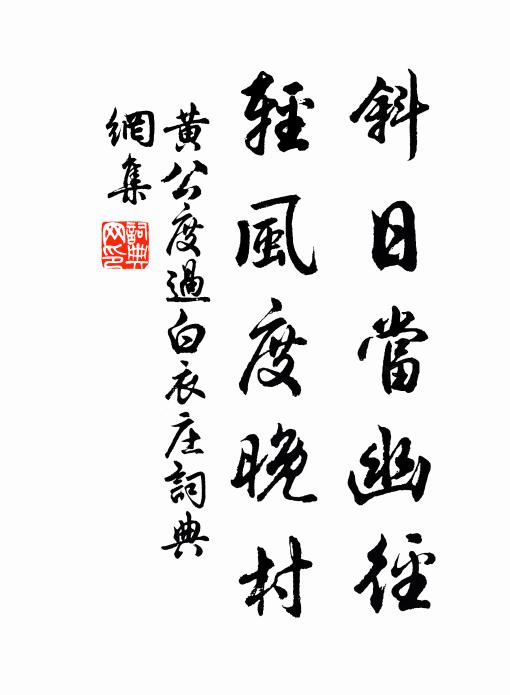 斜日當幽徑
輕風度晚村
黃公度過白衣庄詞典
網集
詞典網印